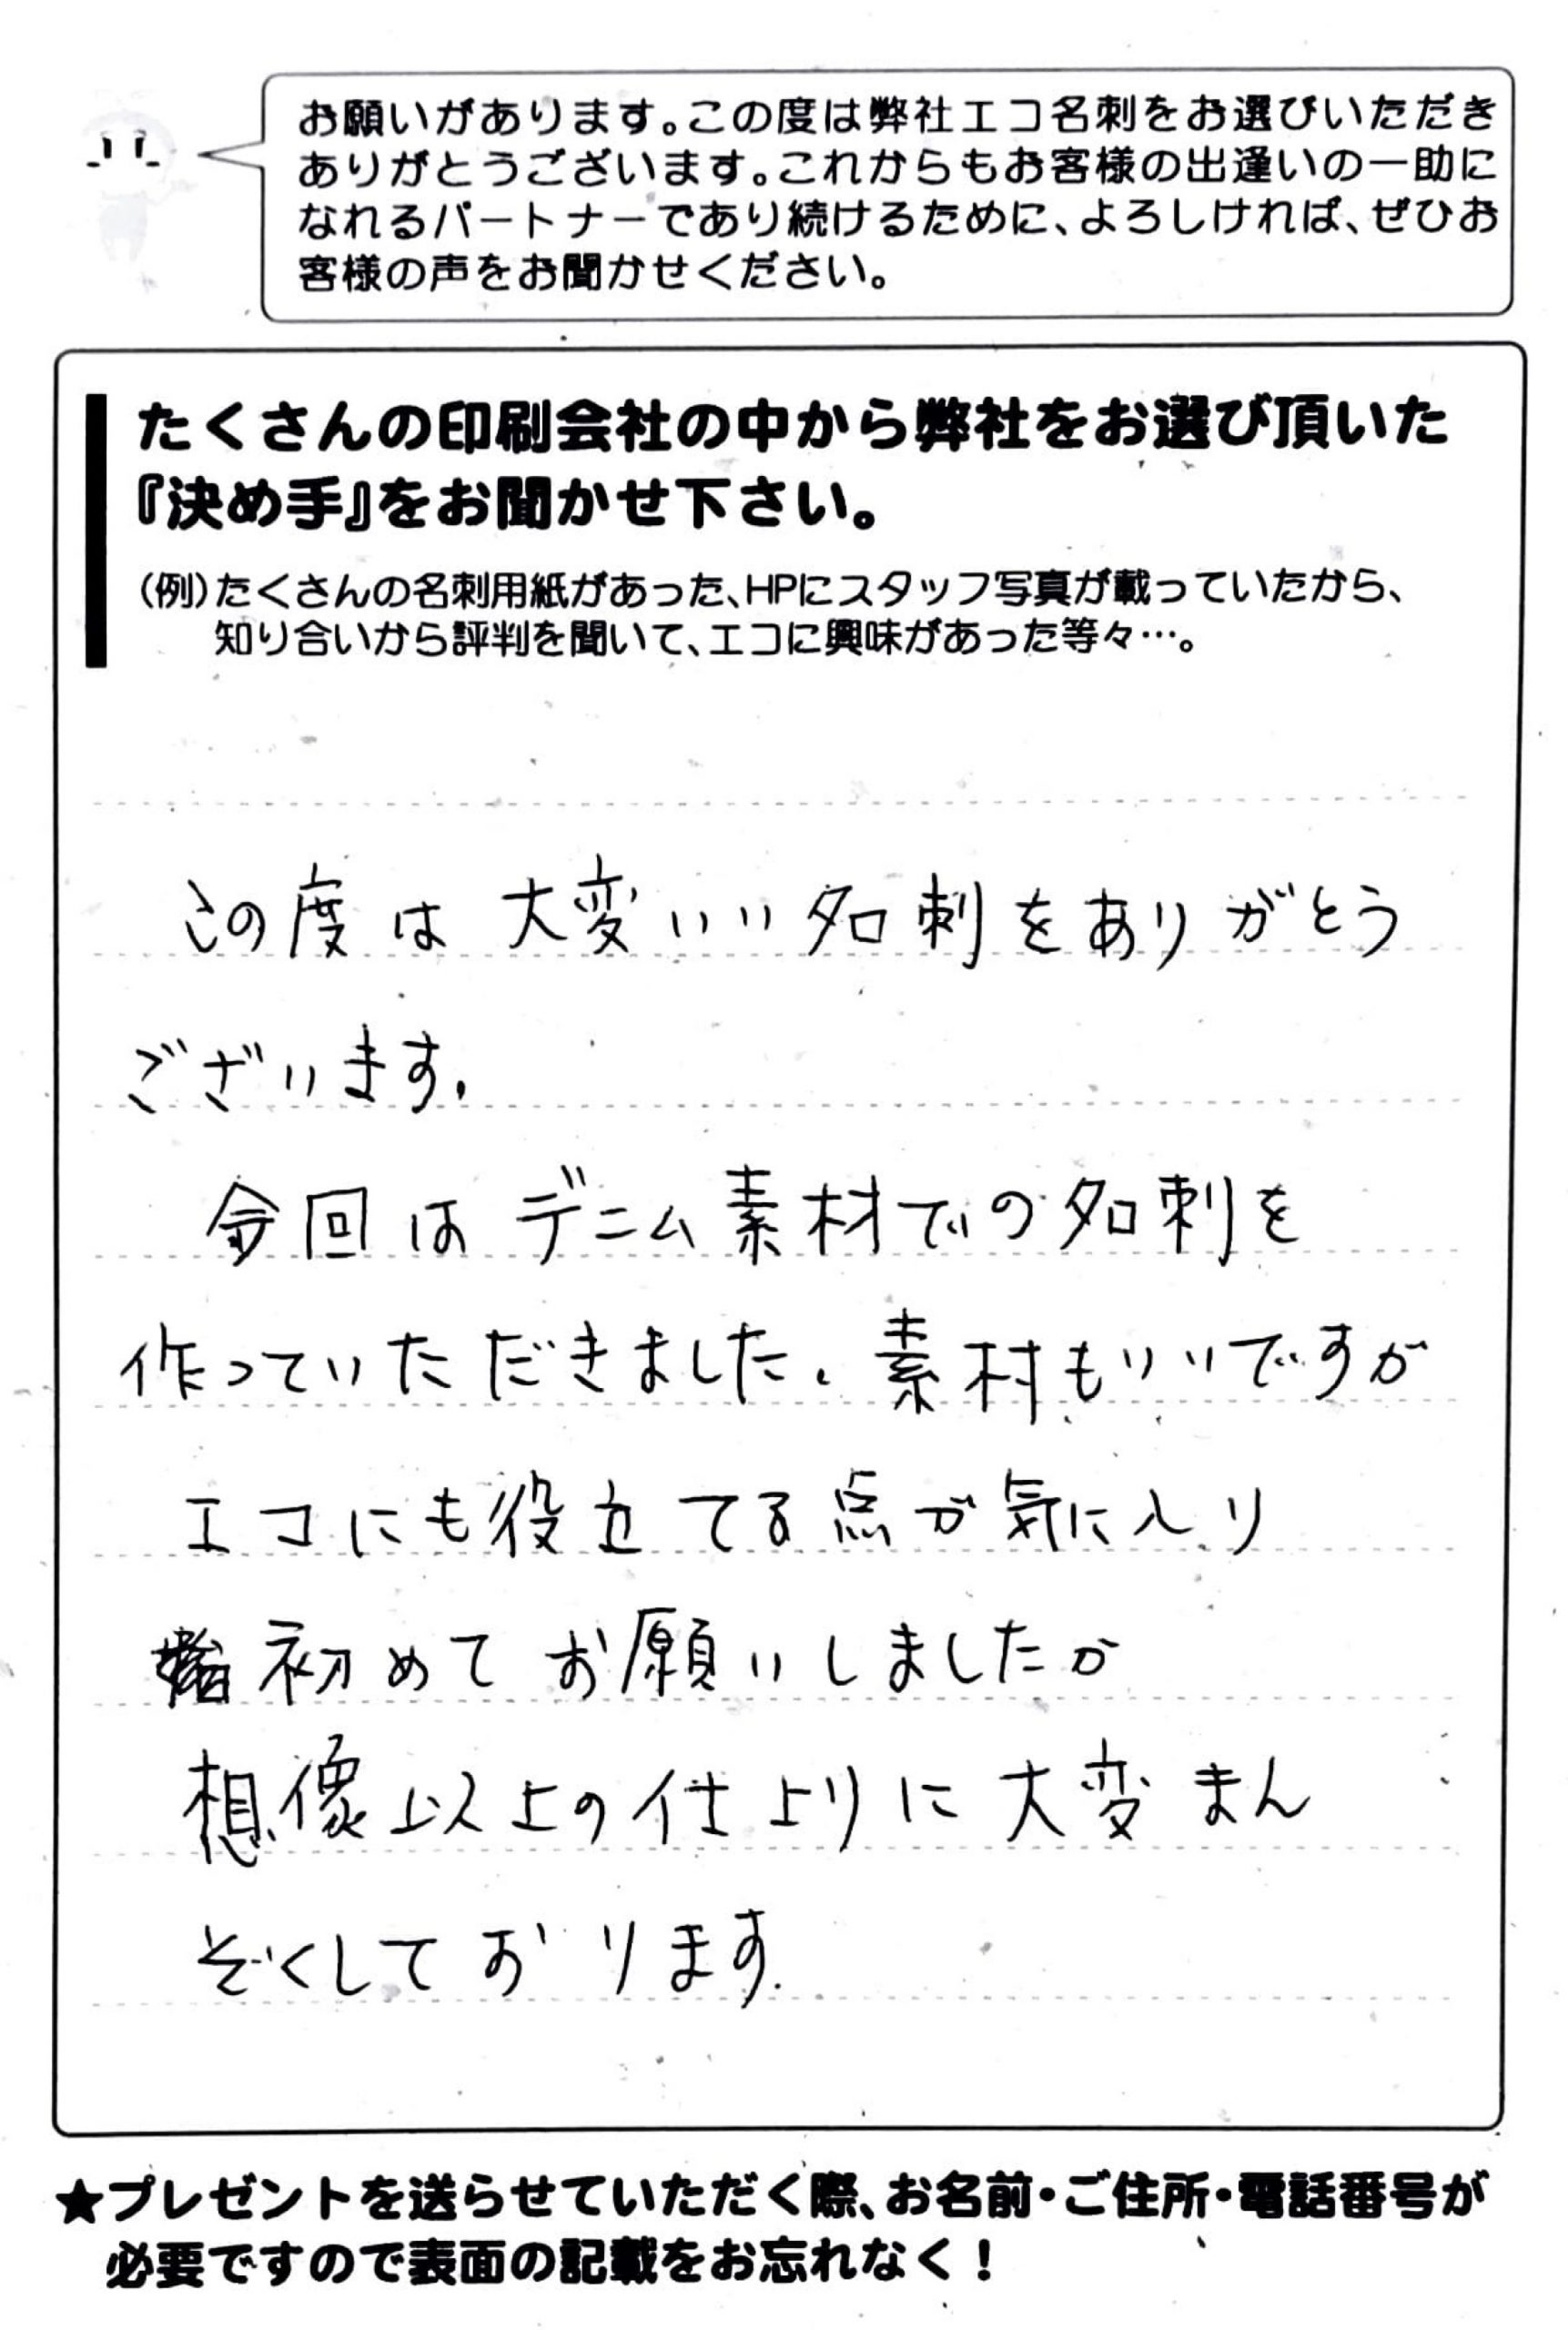 お願いがあります。この度は弊社エコ名刺をお選びいただき
ありがとうございます。これからもお客様の出逢いの一助に
なれるパートナーであり続けるために、よろしければ、ぜひお
客様の声をお聞かせください。
たくさんの印刷会社の中から弊社をお選び頂いた
『決め手』をお聞かせ下さい。
(例)たくさんの名刺用紙があった、HPにスタッフ写真が載っていたから、
知り合いから評判を聞いて、エコに興味があった等々…。
この度は大変いい名刺をありがとう
ございます。
今回はデニム素材での名刺を
作っていただきました。素材もいいですが
エコにも役立てる点が気に入り
初めてお願いしましたが
想像以上の仕上りに大変まん
ぞくしております.
★プレゼントを送らせていただく際、お名前・ご住所・電話番号が
必要ですので表面の記載をお忘れなく！